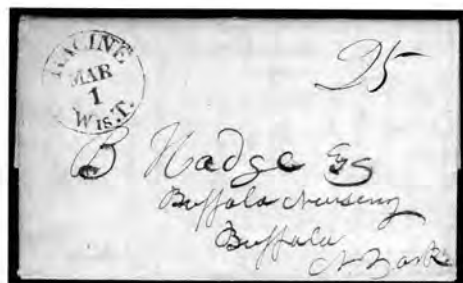 RACINE
MAR
1
WIS.T.
25
B Hadge Esq
Buffalo Nursery
Buffalo
N. York